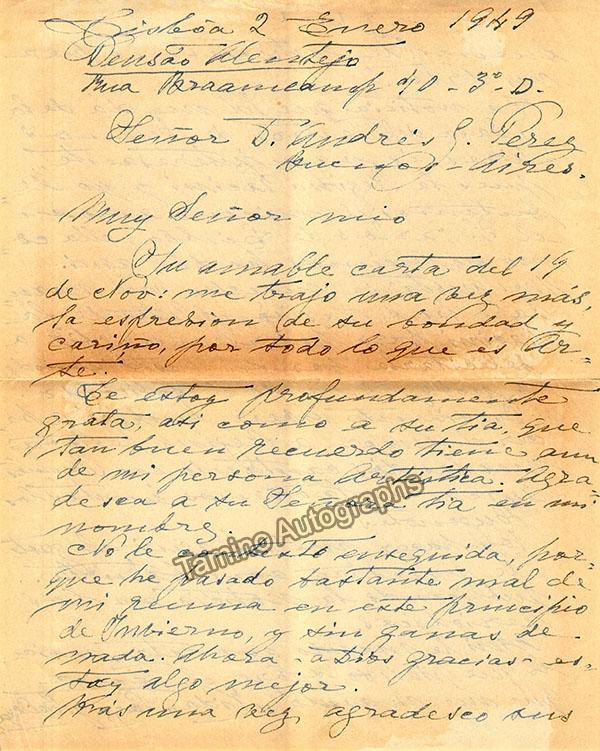 Lisbôa 2 Enero 1949
Pensão Alentejo
Rua Braamcamp 10-3º-D.
Señor D. Andrés S. Perez
Buenos-Aires.
Muy Señor mio
Su amable carta del 19
de Nov: me trajo una vez más,
la espresion de su bondad y
cariño, por todo lo que és Ar-
te.
Le estoy profundamente
grata, asi como a su tia, que
tan buen recuerdo tiene aun
de mi persona Artística. Agra
desca a su Señora tia en mi
nombre.
No le contesto enseguida, por-
que he pasado bastante mal de
mi reuma en este principio
de Invierno, y sin ganas de
nada. Ahora -a Dios gracias- es-
toy algo mejor.
Más una vez, agradesco sus
Tamino Autographs